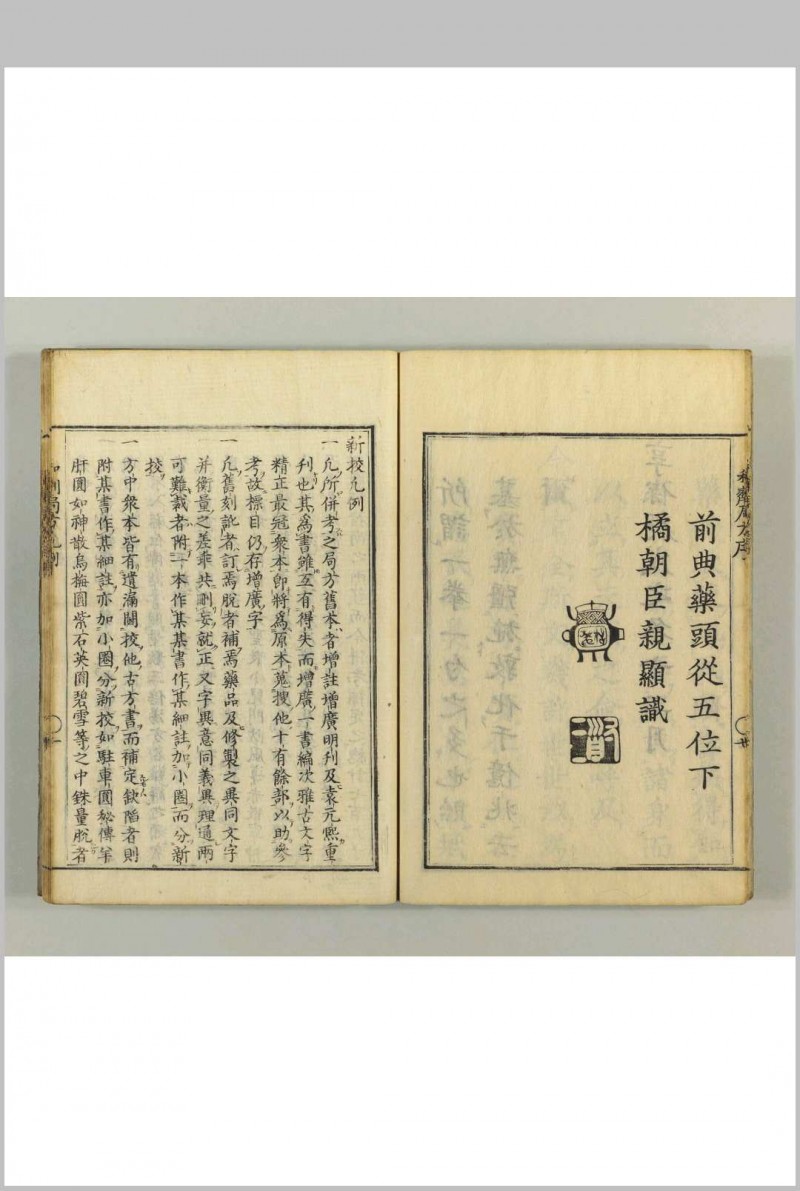 前典藥頭從五位下
橘朝臣親顯識
新校凡例
一凡所併考之局方舊本者增註增廣明刊及袁元熙重
刊也其爲書雖互有得失而增廣一書編次雅古文字
精正最冠衆本卽將爲原本蒐搜他十有餘部以助參
考故標目仍存增廣字
一凡舊刻訛者訂焉脫者補焉藥品及修製之異同文字
幷衡量之差乖共刪妄就正又字異意同義異理通兩
可難裁者附一本作某某書作某細註加小圈而分新
校
一方中衆本皆有遺漏關挍他古方書而補定缺陷者則
附某書作某細註亦加小圈分新挍如駐車圓秘傳羊
肝圓如神散烏梅圓紫石英圓碧雪等之中銖量脫者